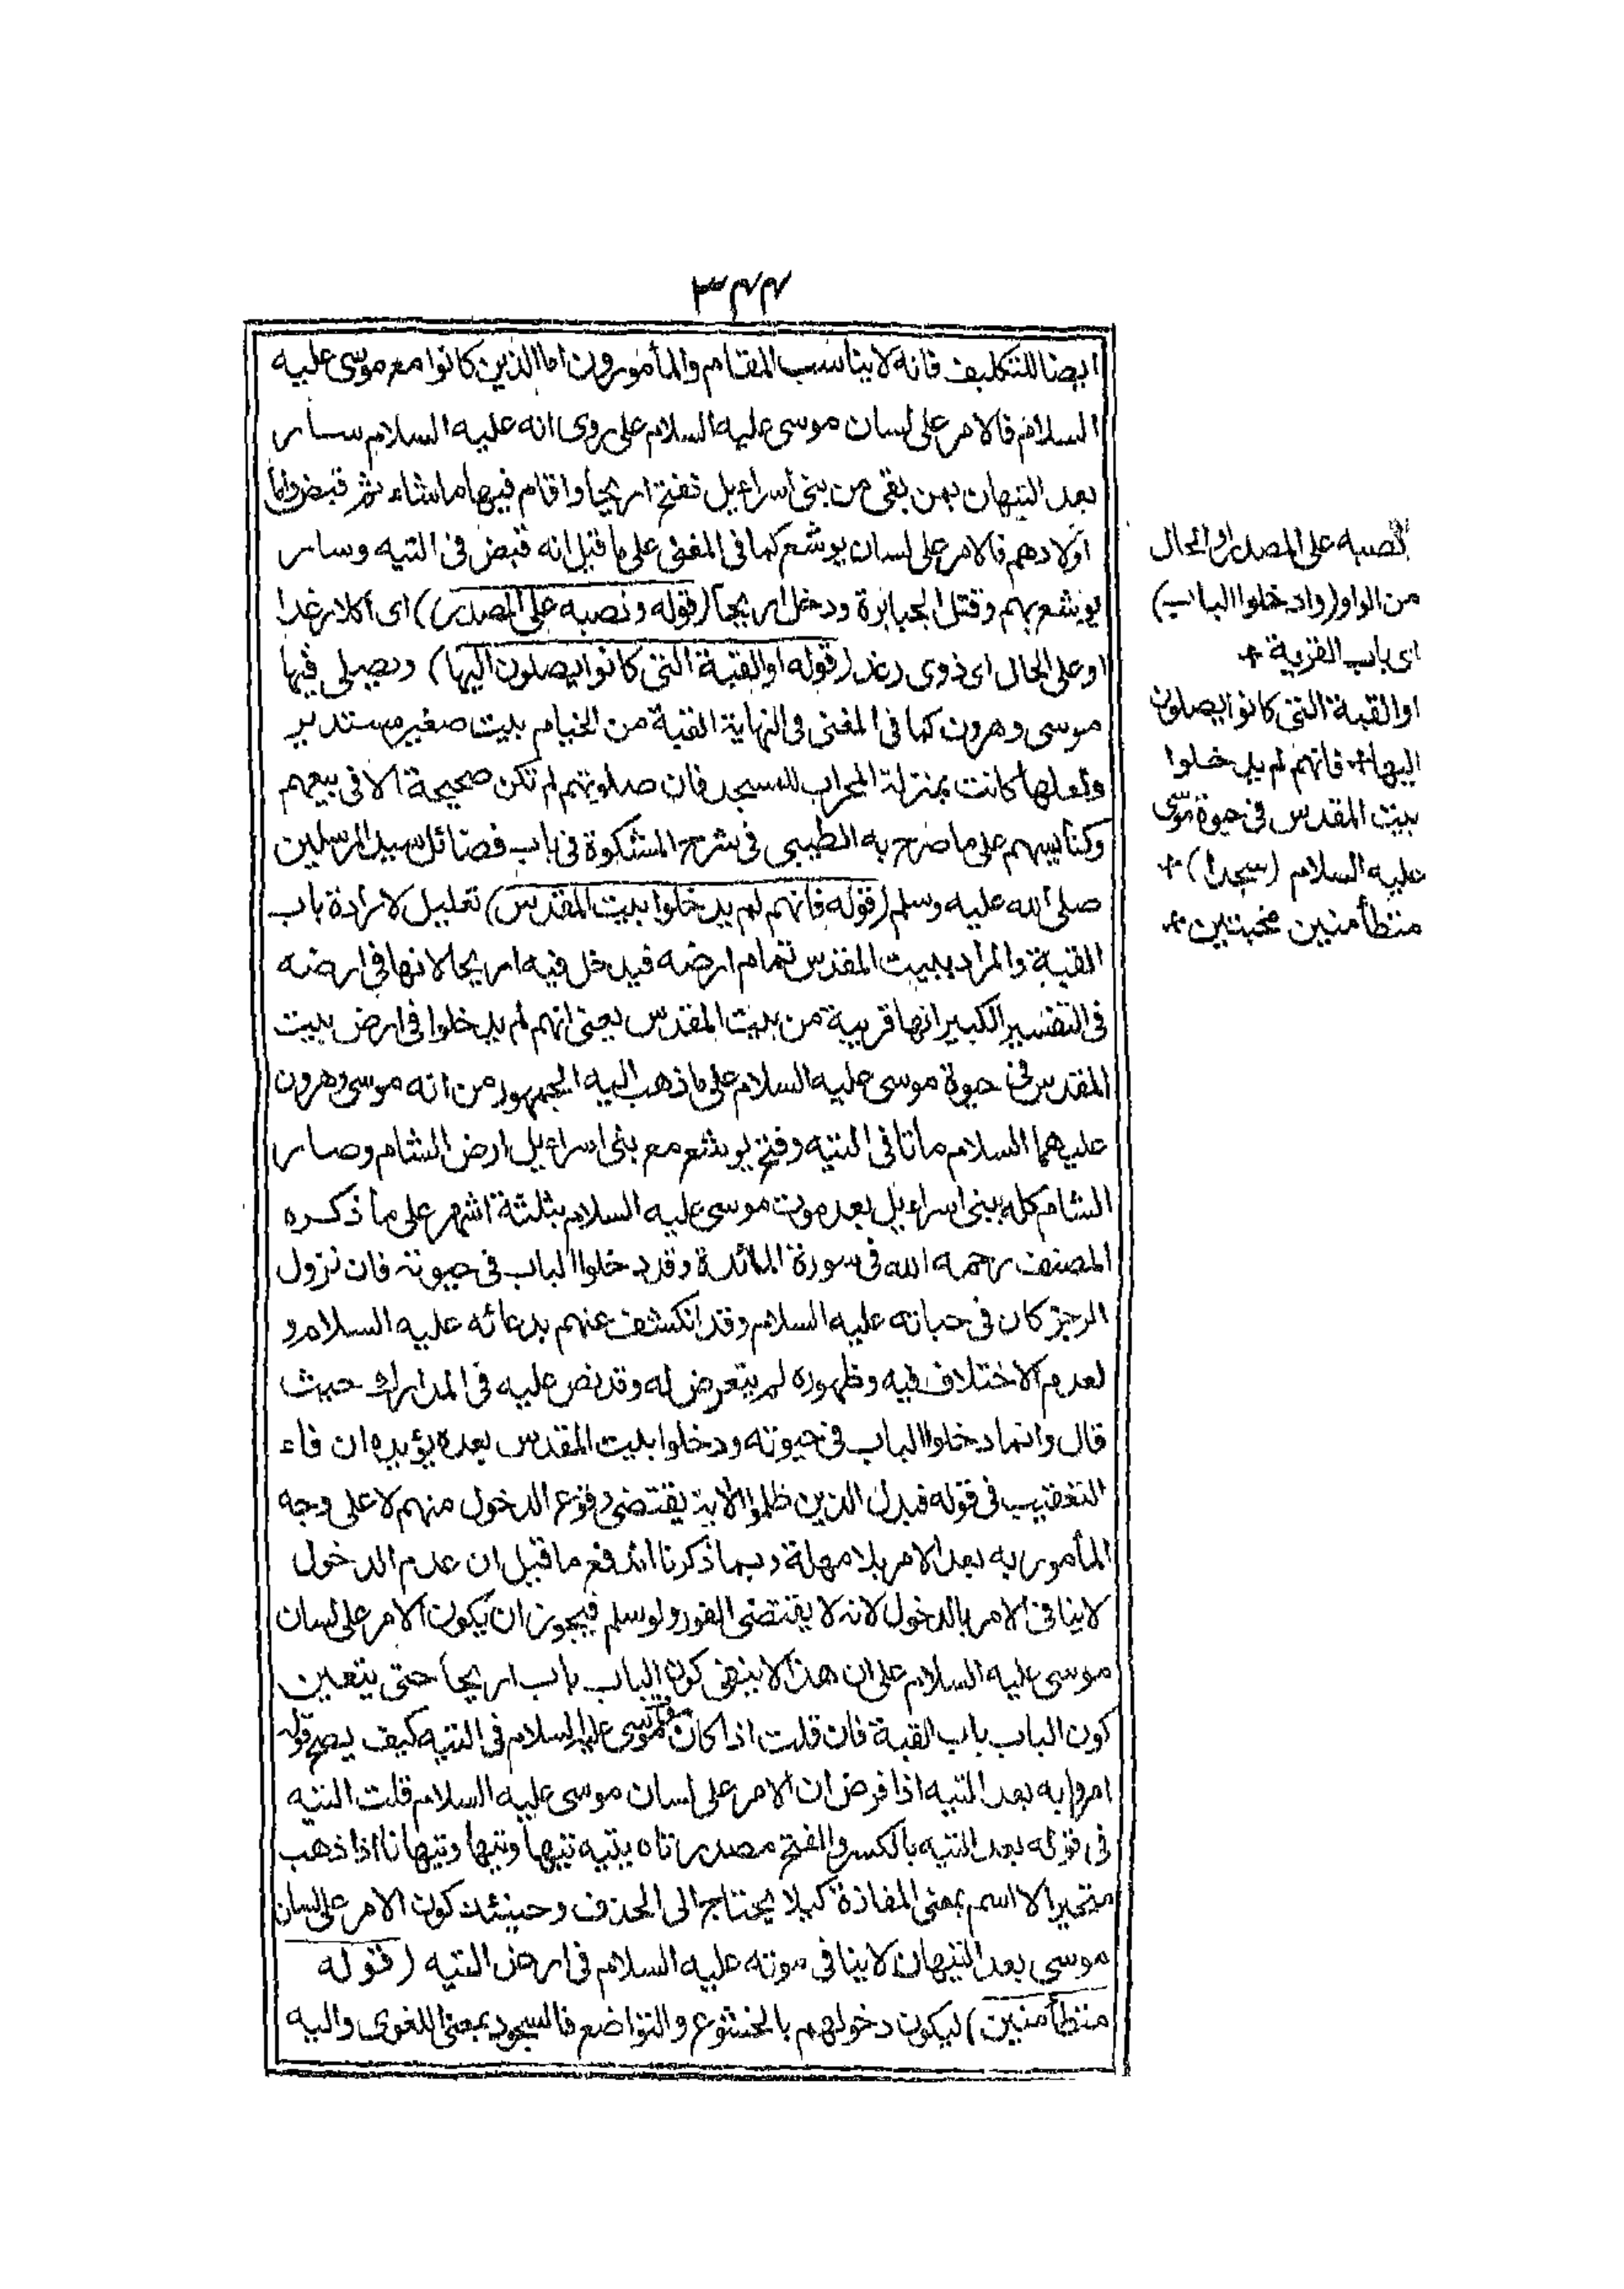 ٣٤٤
ايضا للتكليف فانه لا يناسب المقام والمأمورون اما الذين كانوا مع موسى عليه
السلام فالامر على لسان موسى عليه السلام على روى انه عليه السلام سار
بعد التيهان بمن بقى من بنى اسراءيل ففتح اريحا واقام فيها ماشاء ثم قبض واما
اولادهم فالامر على لسان يوشع كما فى المغنى على ما قيل انه قبض فى التيه وسار
يوشع بهم وقتل الجبابرة ودخل اريحا (قوله ونصبه على المصدر) اى اكلا رغدا
او على الحال اى ذوى رغد (قوله او القبة التى كانوا يصلون اليها) ويصلى فيها
موسى وهرون كما فى المغنى وفى النهاية القبة من الخيام بيت صغير مستدير
ولعلها كانت بمنزلة المحراب للمسجد فان صلوتهم لم تكن صحيحة الا فى بيعهم
وكنايسهم على ما صرح به الطيبى فى شرح المشكوة فى باب فضائل سيد المرسلين
صلى الله عليه وسلم (قوله فانهم لم يدخلوا بيت المقدس) تعليل لارادة باب
القبة والمراد ببيت المقدس تمام ارضه فيدخل فيه اريحا لانها فى ارضه
فى التفسير الكبير انها قريبة من بيت المقدس يعنى انهم لم يدخلوا فى ارض بيت
المقدس فى حيوة موسى عليه السلام على ما ذهب اليه الجمهور من انه موسى وهرون
عليهما السلام ماتا فى التيه وفتح يوشع مع بنى اسراءيل ارض الشام وصار
الشام كله لبنى اسراءيل بعد موت موسى عليه السلام بثلثة اشهر على ما ذكره
المصنف رحمه الله فى سورة المائدة وقد دخلوا الباب فى حيوته فان نزول
الرجز كان فى حياته عليه السلام وقد انكشف عنهم بدعائه عليه السلام و
لعدم الاختلاف فيه وظهوره لم يتعرض له وقد نص عليه فى المدارك حيث
قال وانما دخلوا الباب فى حيوته ودخلوا بيت المقدس بعده يؤيده ان فاء
التعقيب فى قوله فبدل الذين ظلموا الاية يقتضى وقوع الدخول منهم لا على وجه
المأمور به بعد الامر بلا مهلة وبما ذكرنا اندفع ما قيل ان عدم الدخول
لا ينافى الامر بالدخول لانه لا يقتضى الفور ولو سلم فيجوز ان يكون الامر على لسان
موسى عليه السلام على ان هذا لا ينفى كون الباب باب اريحا حتى يتعين
كون الباب باب القبة فان قلت اذا كان موسى عليه السلام فى التيه كيف يصح قوله
امروا به بعد التيه اذا فرض ان الامر على لسان موسى عليه السلام قلت التيه
فى قوله بعد التيه بالكسر والفتح مصدر تاه يتيه تيها وتيها وتيهانا اذا ذهب
متحيرا لا اسم بمعنى المفازة كيلا يحتاج الى الحذف وحينئذ كون الامر على لسان
موسى بعد التيهان لا ينافى موته عليه السلام فى ارض التيه (قوله
متطأمنين) ليكون دخولهم بالخشوع والتواضع فالسجود بمعنى اللغوى واليه
نصبه على المصدر او الحال
من الواو (وادخلوا الباب)
اى باب القرية +
او القبة التى كانوا يصلون
اليها + فانهم لم يدخلوا
بيت المقدس فى حيوة موسى
عليه السلام (سجدا) +
متطأمنين مخبتين +